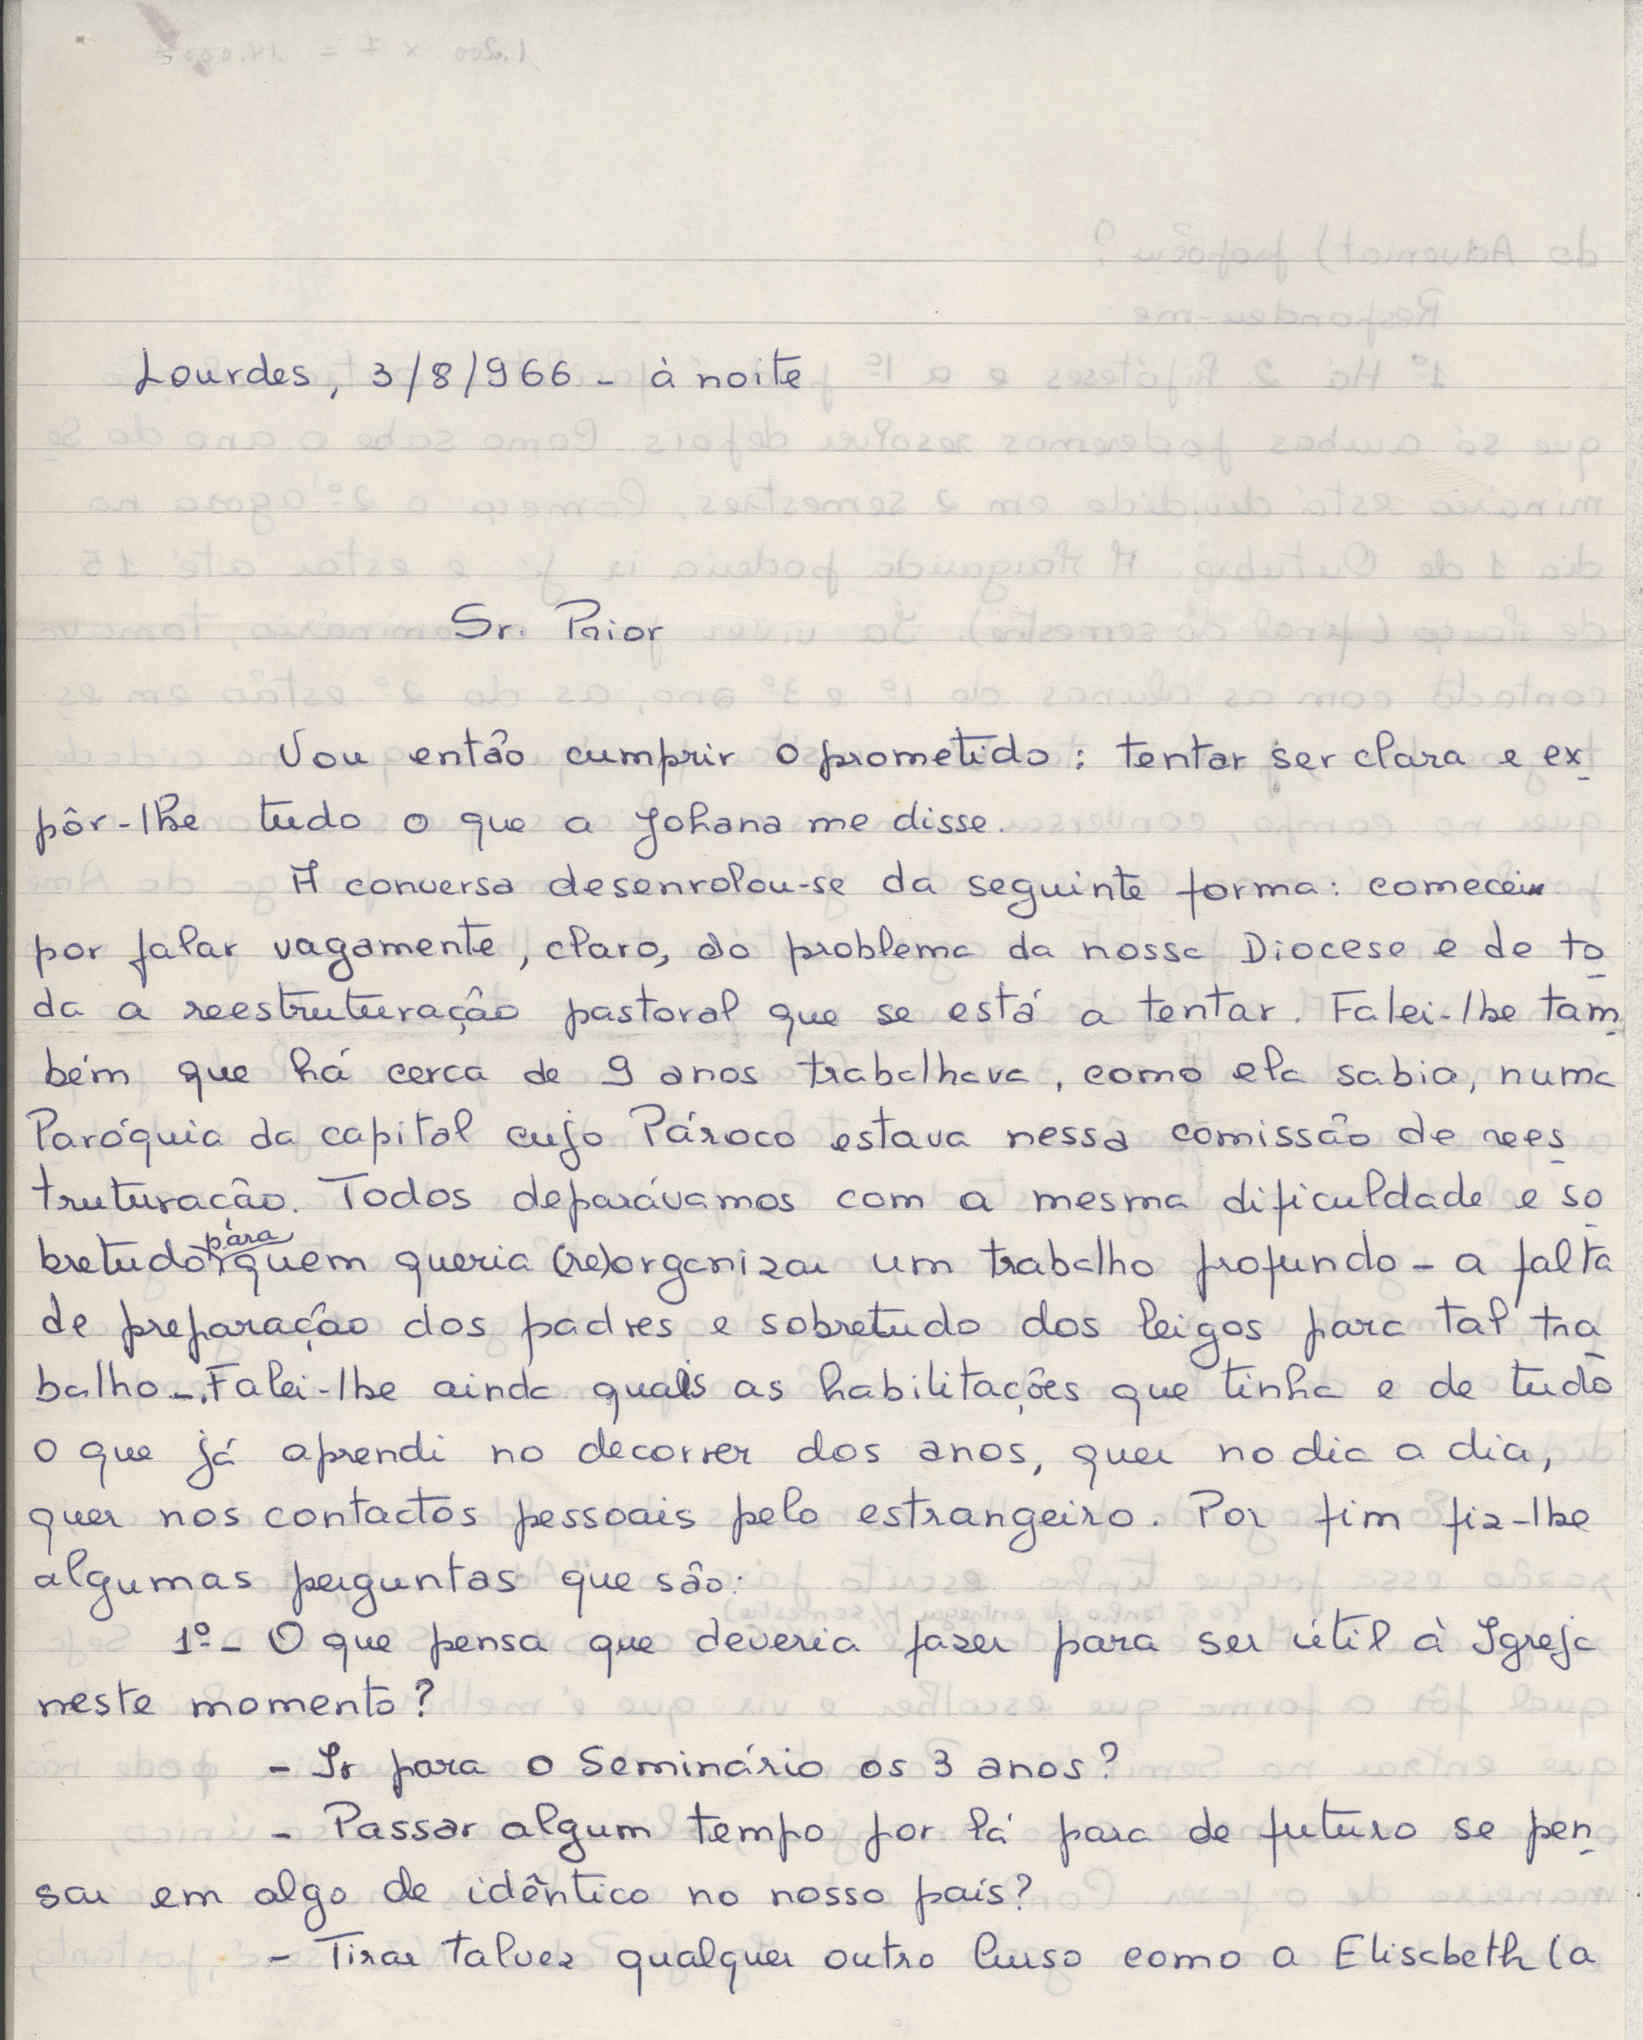 Lourdes, 3/8/966 - à noite
Sr. Prior
Vou então cumprir o prometido: tentar ser clara e ex
pôr-lhe tudo o que a Johana me disse.
A conversa desenrolou-se da seguinte forma: comecei
por falar vagamente, claro, do problema da nossa Diocese e de to
da a reestruturação pastoral que se está a tentar. Falei-lhe tam
bém que há cerca de 9 anos trabalhava, como ela sabia, numa
Paróquia da capital cujo Pároco estava nessa comissão de rees
truturacão. Todos deparávamos com a mesma dificuldade e so
bretudo para quem queria (re)organizar um trabalho profundo - a falta
de preparação dos padres e sobretudo dos leigos para tal tra
balho -. Falei-lhe ainda quais as habilitações que tinha e de tudo
o que já aprendi no decorrer dos anos, quer no dia a dia,
quer nos contactos pessoais pelo estrangeiro. Por fim fiz-lhe
algumas perguntas que são:
1º - O que pensa que deveria fazer para ser útil à Igreja
neste momento?
- Ir para o Seminário os 3 anos?
- Passar algum tempo por lá para de futuro se pen
sar em algo de idêntico no nosso país?
- Tirar talvez qualquer outro Curso como a Elisabeth (a